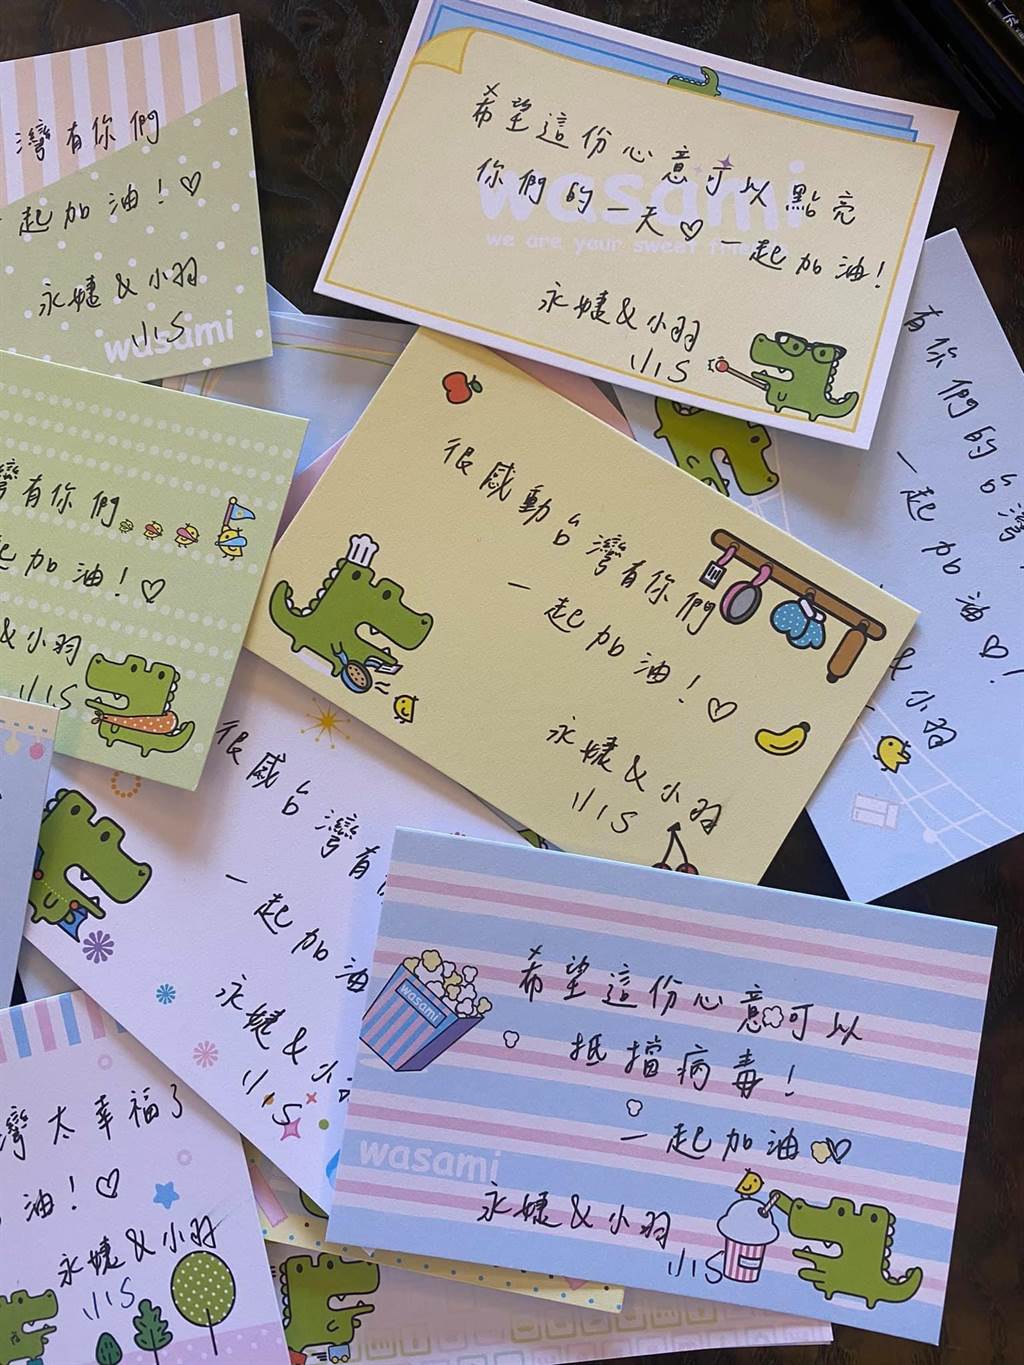 灣有你們
一起加油！♡
永婕&小羽
wasami
希望這份心意可以點亮
你們的一天♡一起加油！
永婕&小羽
wasami
we are your sweet
有你們的台灣
一起加油♡！
&小羽
灣有你們
起加油！♡
&小羽
很感動台灣有你們
一起加油！♡
永婕&小羽
很感台灣有
一起加油
永婕&小
灣太幸福了
油！♡
永婕&小羽
wasami
希望這份心意可以
抵擋病毒！
一起加油♡
wasami
永婕&小羽